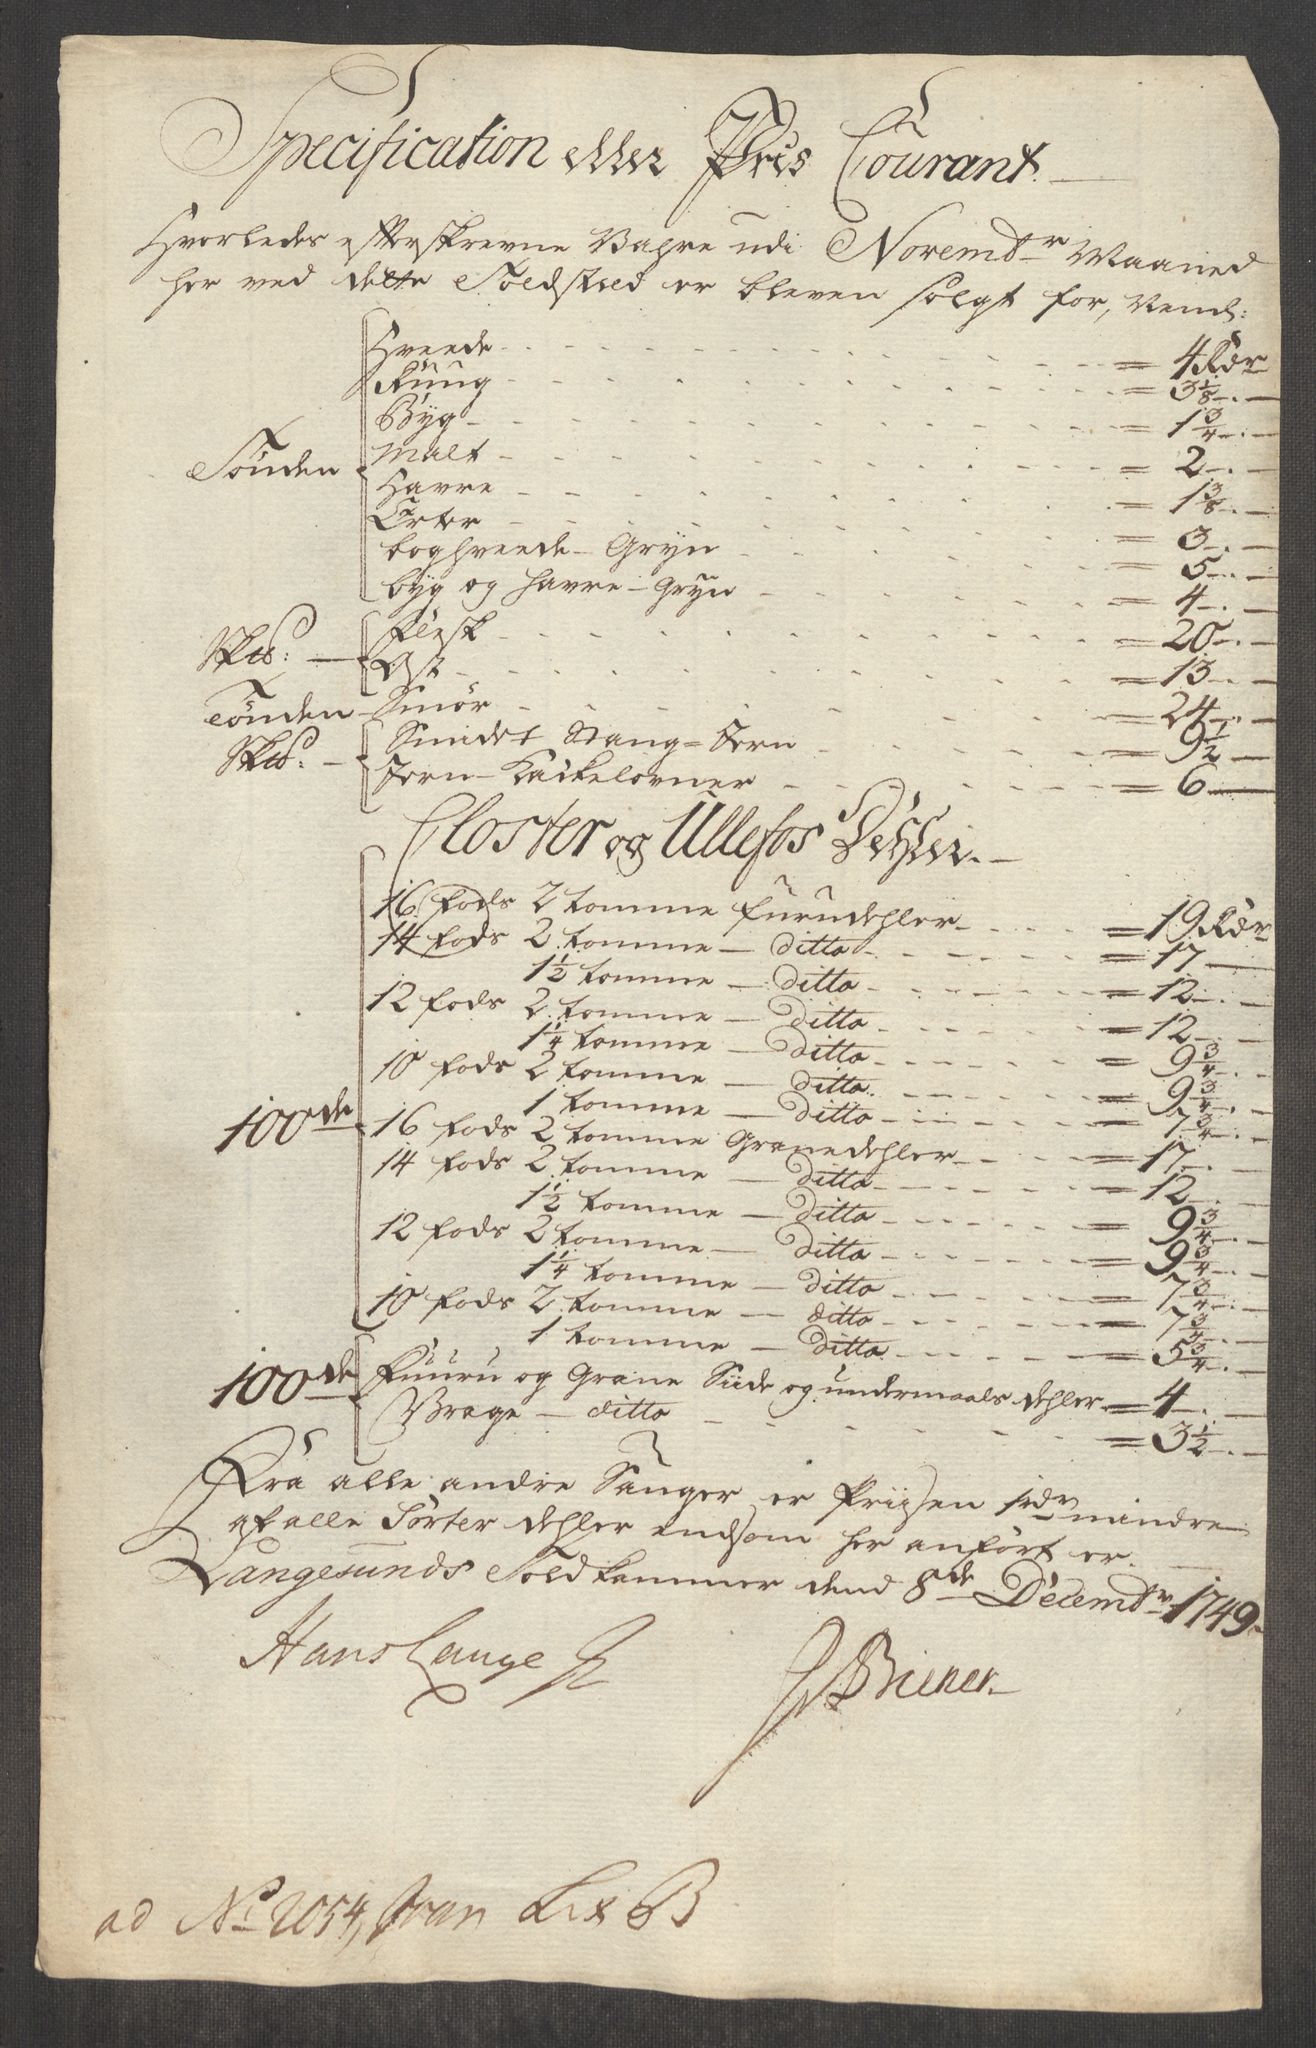 Specification eller Priis Courant
Hvorledes efterskrevne Vahre udi Novembr Maaned
her ved dette Toldsted er bleven solgt for, Neml:
Hveede = 4 Rdr
Rüug = 3 1/8
Byg = 1 3/4
Tönden Malt = 2
Havre = 1 3/8
Erter = 3
boghveede-Gryn = 5
byg og havre-Gryn = 4
Flesk = 20
Sk℔: Ost = 13
Tönden Smör = 24
Smidet Stang=Jern = 9 1/2
Sk℔: Jern-Kackelovner = 6
Closter og Ullefos Dehler.
16 fods 2 tomme furudehler = 19 Rdr
14 fods 2 tomme ditto = 17
1 1/2 tomme ditto = 12
12 fods 2 tomme ditto = 12
1 1/4 tomme ditto = 9 3/4
10 fods 2 tomme ditto = 9 3/4
1 tomme ditto = 7 3/4
100de 16 fods 2 tomme Granedehler = 17
14 fods 2 tomme ditto = 12
1 1/2 tomme ditto = 9 3/4
12 fods 2 tomme ditto = 9 3/4
1 1/4 tomme ditto = 7 3/4
10 fods 2 tomme ditto = 7 3/4
1 tomme ditto = 5 3/4
100de Fuuru og Grane Siide og undermaals dehler = 4
Vrage ditto = 3 1/2
Fra alle andre Sauger er Priisen 1rdr mindre
af alle Sorter dehler end som her anfört er.
Langesunds Toldkammer dend 8de Decembr 1749.
Hans Lange
Briener
ad No 2054, Lit B